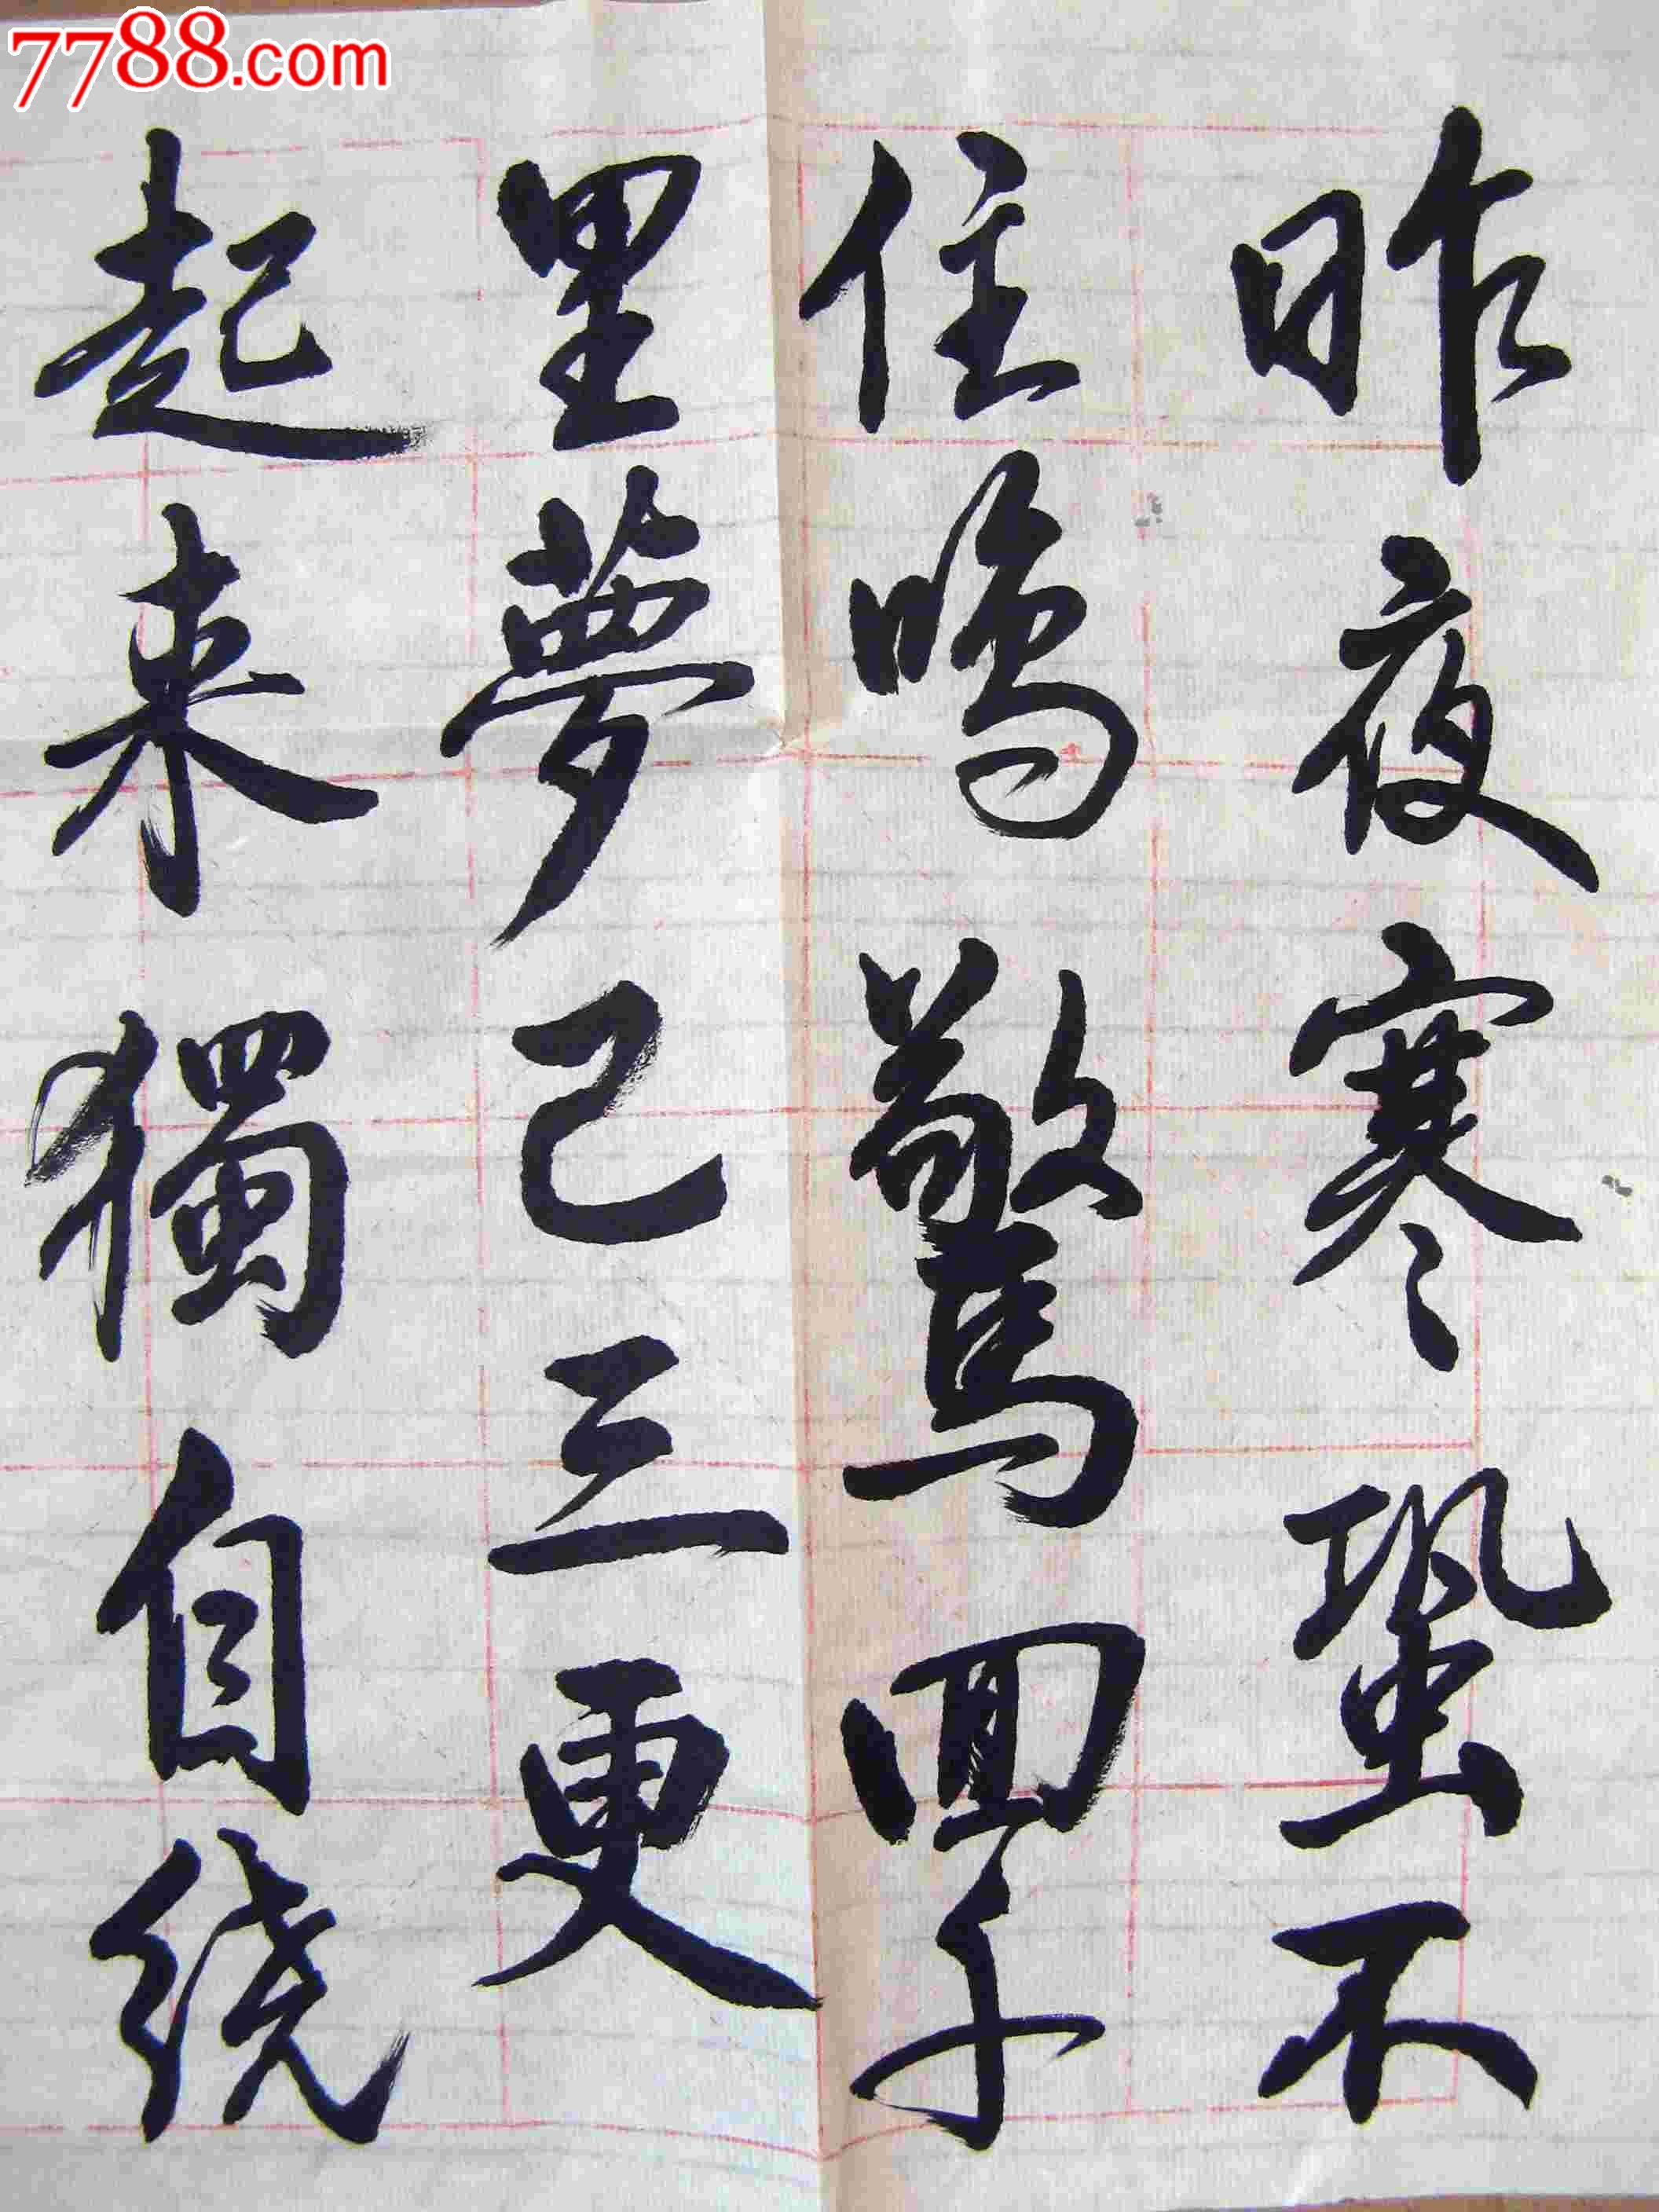 7788.com
昨夜寒蛩不
住鳴驚回千
里夢已三更
起来獨自绕